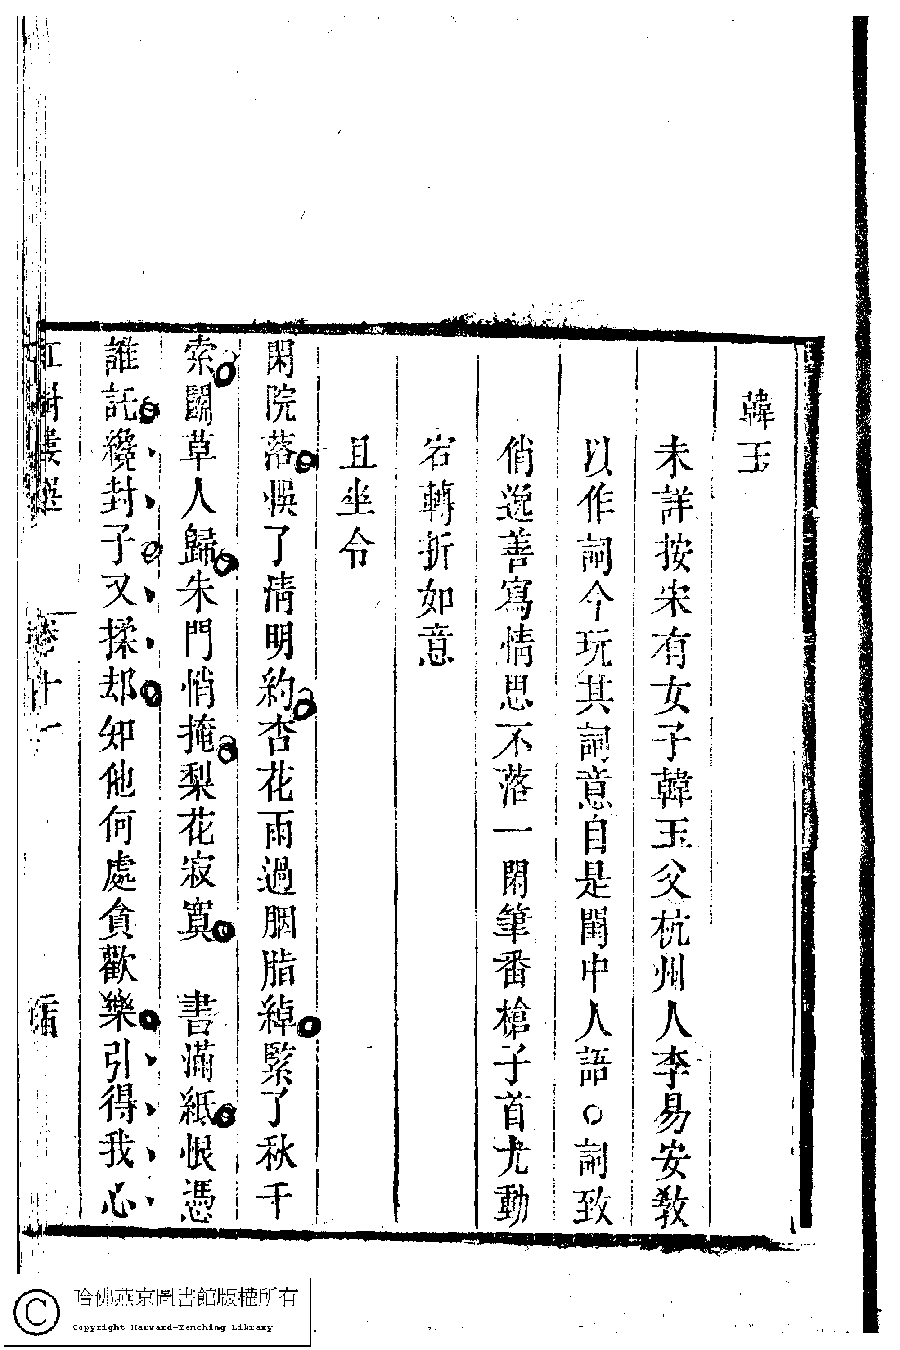 韓玉
未詳按宋有女子韓玉父杭州人李易安敎
以作詞今玩其詞意自是閨中人語○詞致
俏逸善寫情思不落一閑筆番槍子首尤動
宕轉折如意
且坐令
閑院落悞了淸明約杏花雨過胭脂綽緊了秋千
索鬭草人歸朱門悄掩梨花寂寞　書滿紙恨憑
誰託纔封了又揉却知他何處貪歡樂引得我心
卷十一
哈佛燕京圖書館版權所有
Copyright Harvard-Yenching Library